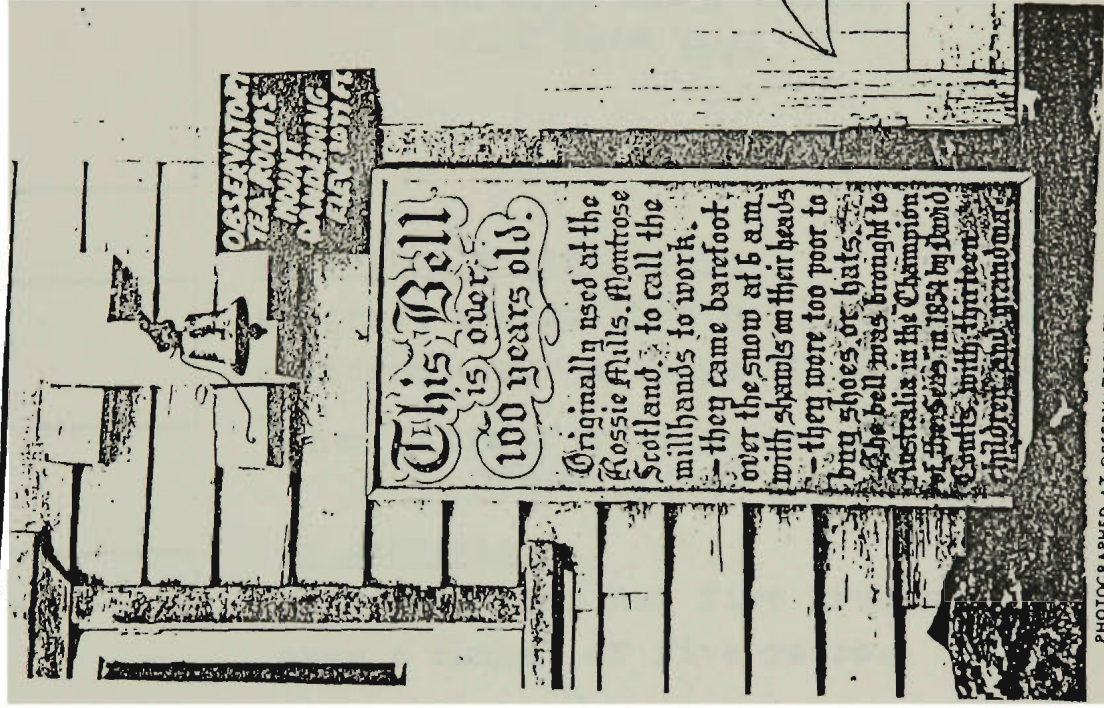 OBSERVATORY
TEA ROOMS
MOUNT
DANDENONG
ELEV 2077 FT.
This Bell
is over
100 years old.
Originally used at the
Rossie Mills, Montrose
Scotland, to call the
millhands to work.
- they came barefoot
over the snow at 6 a.m.
with shawls on their heads
- they were too poor to
buy shoes or hats.
The bell was brought to
Australia in the Champion
of the seas in 1854 by David
Coutts, with thirteen
children, and grandma.
PHOTOGRAPHED AT OBSERVATORY TEA ROOMS